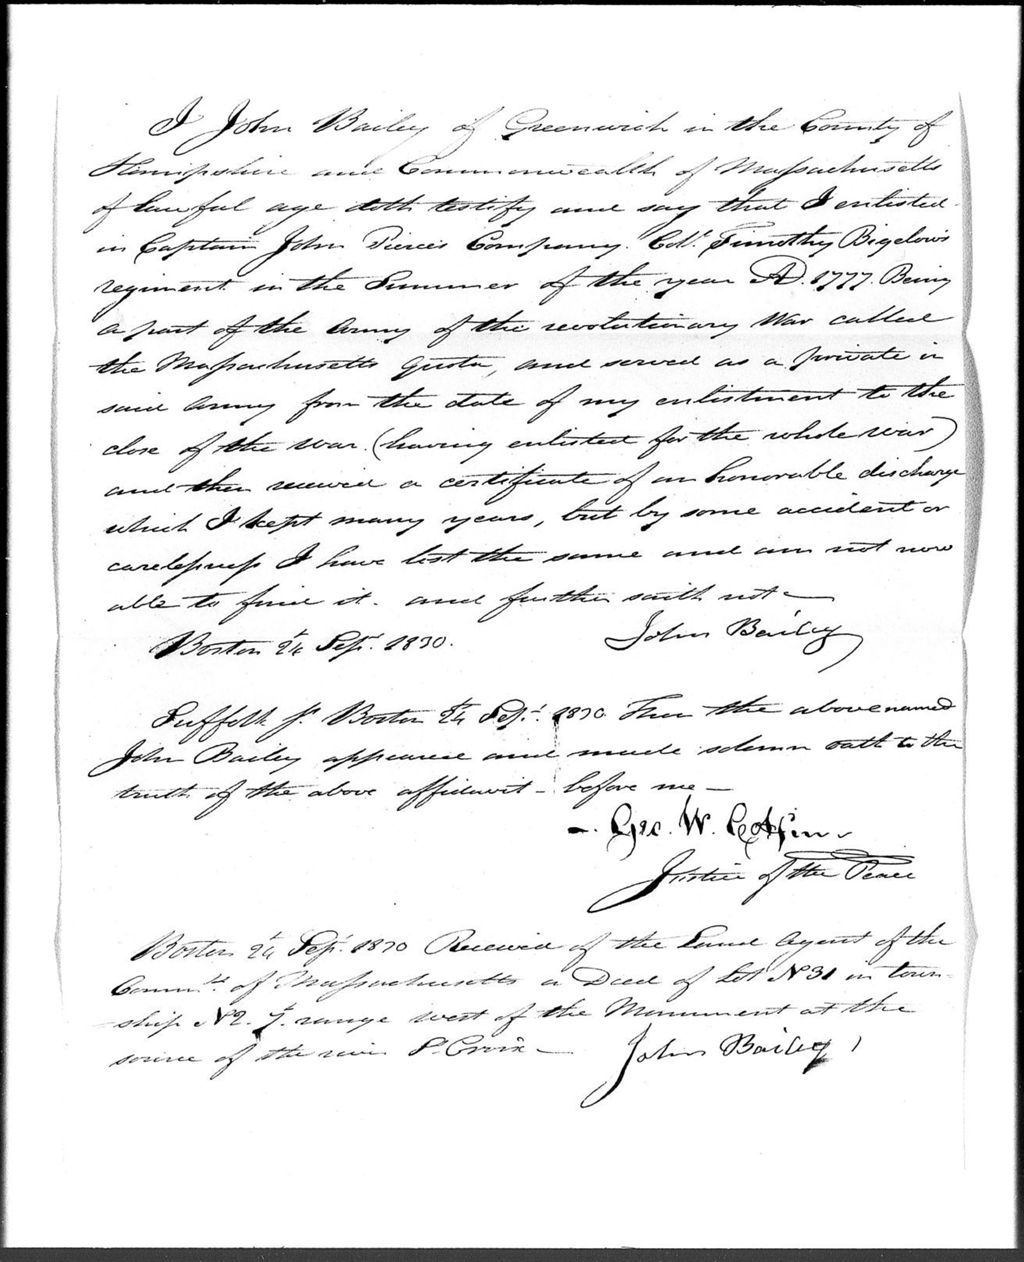 I John Bailey of Greenwich in the County of
Hampshire and Commonwealth of Massachusetts
of lawful age doth testify and say that I enlisted
in Captain John Pierce's Company. Coll. Timothy Bigelow's
regiment in the Summer of the year AD. 1777. Being
a part of the Army of the revolutionary War called
the Massachusetts Quota, and served as a private in
said Army from the date of my enlistment to the
close of the war. (having enlisted for the whole war)
and then received a certificate of an honorable discharge
which I kept many years, but by some accident or
carelessness I have lost the same and am not now
able to find it. and further saith not —
Boston 24 Sept. 1830. John Bailey
Suffolk ss. Boston 24 Sept. 1830 Then the above named
John Bailey appeared and made solemn oath to the
truth of the above affidavit - before me —
Geo. W. Coffin
Justice of the Peace
Boston 24 Sept. 1830 Received of the Land Agent of the
Commth. of Massachusetts a Deed of Lot No 31 in town-
ship No 2. 7. range west of the Monument at the
source of the river St. Croix — John Bailey